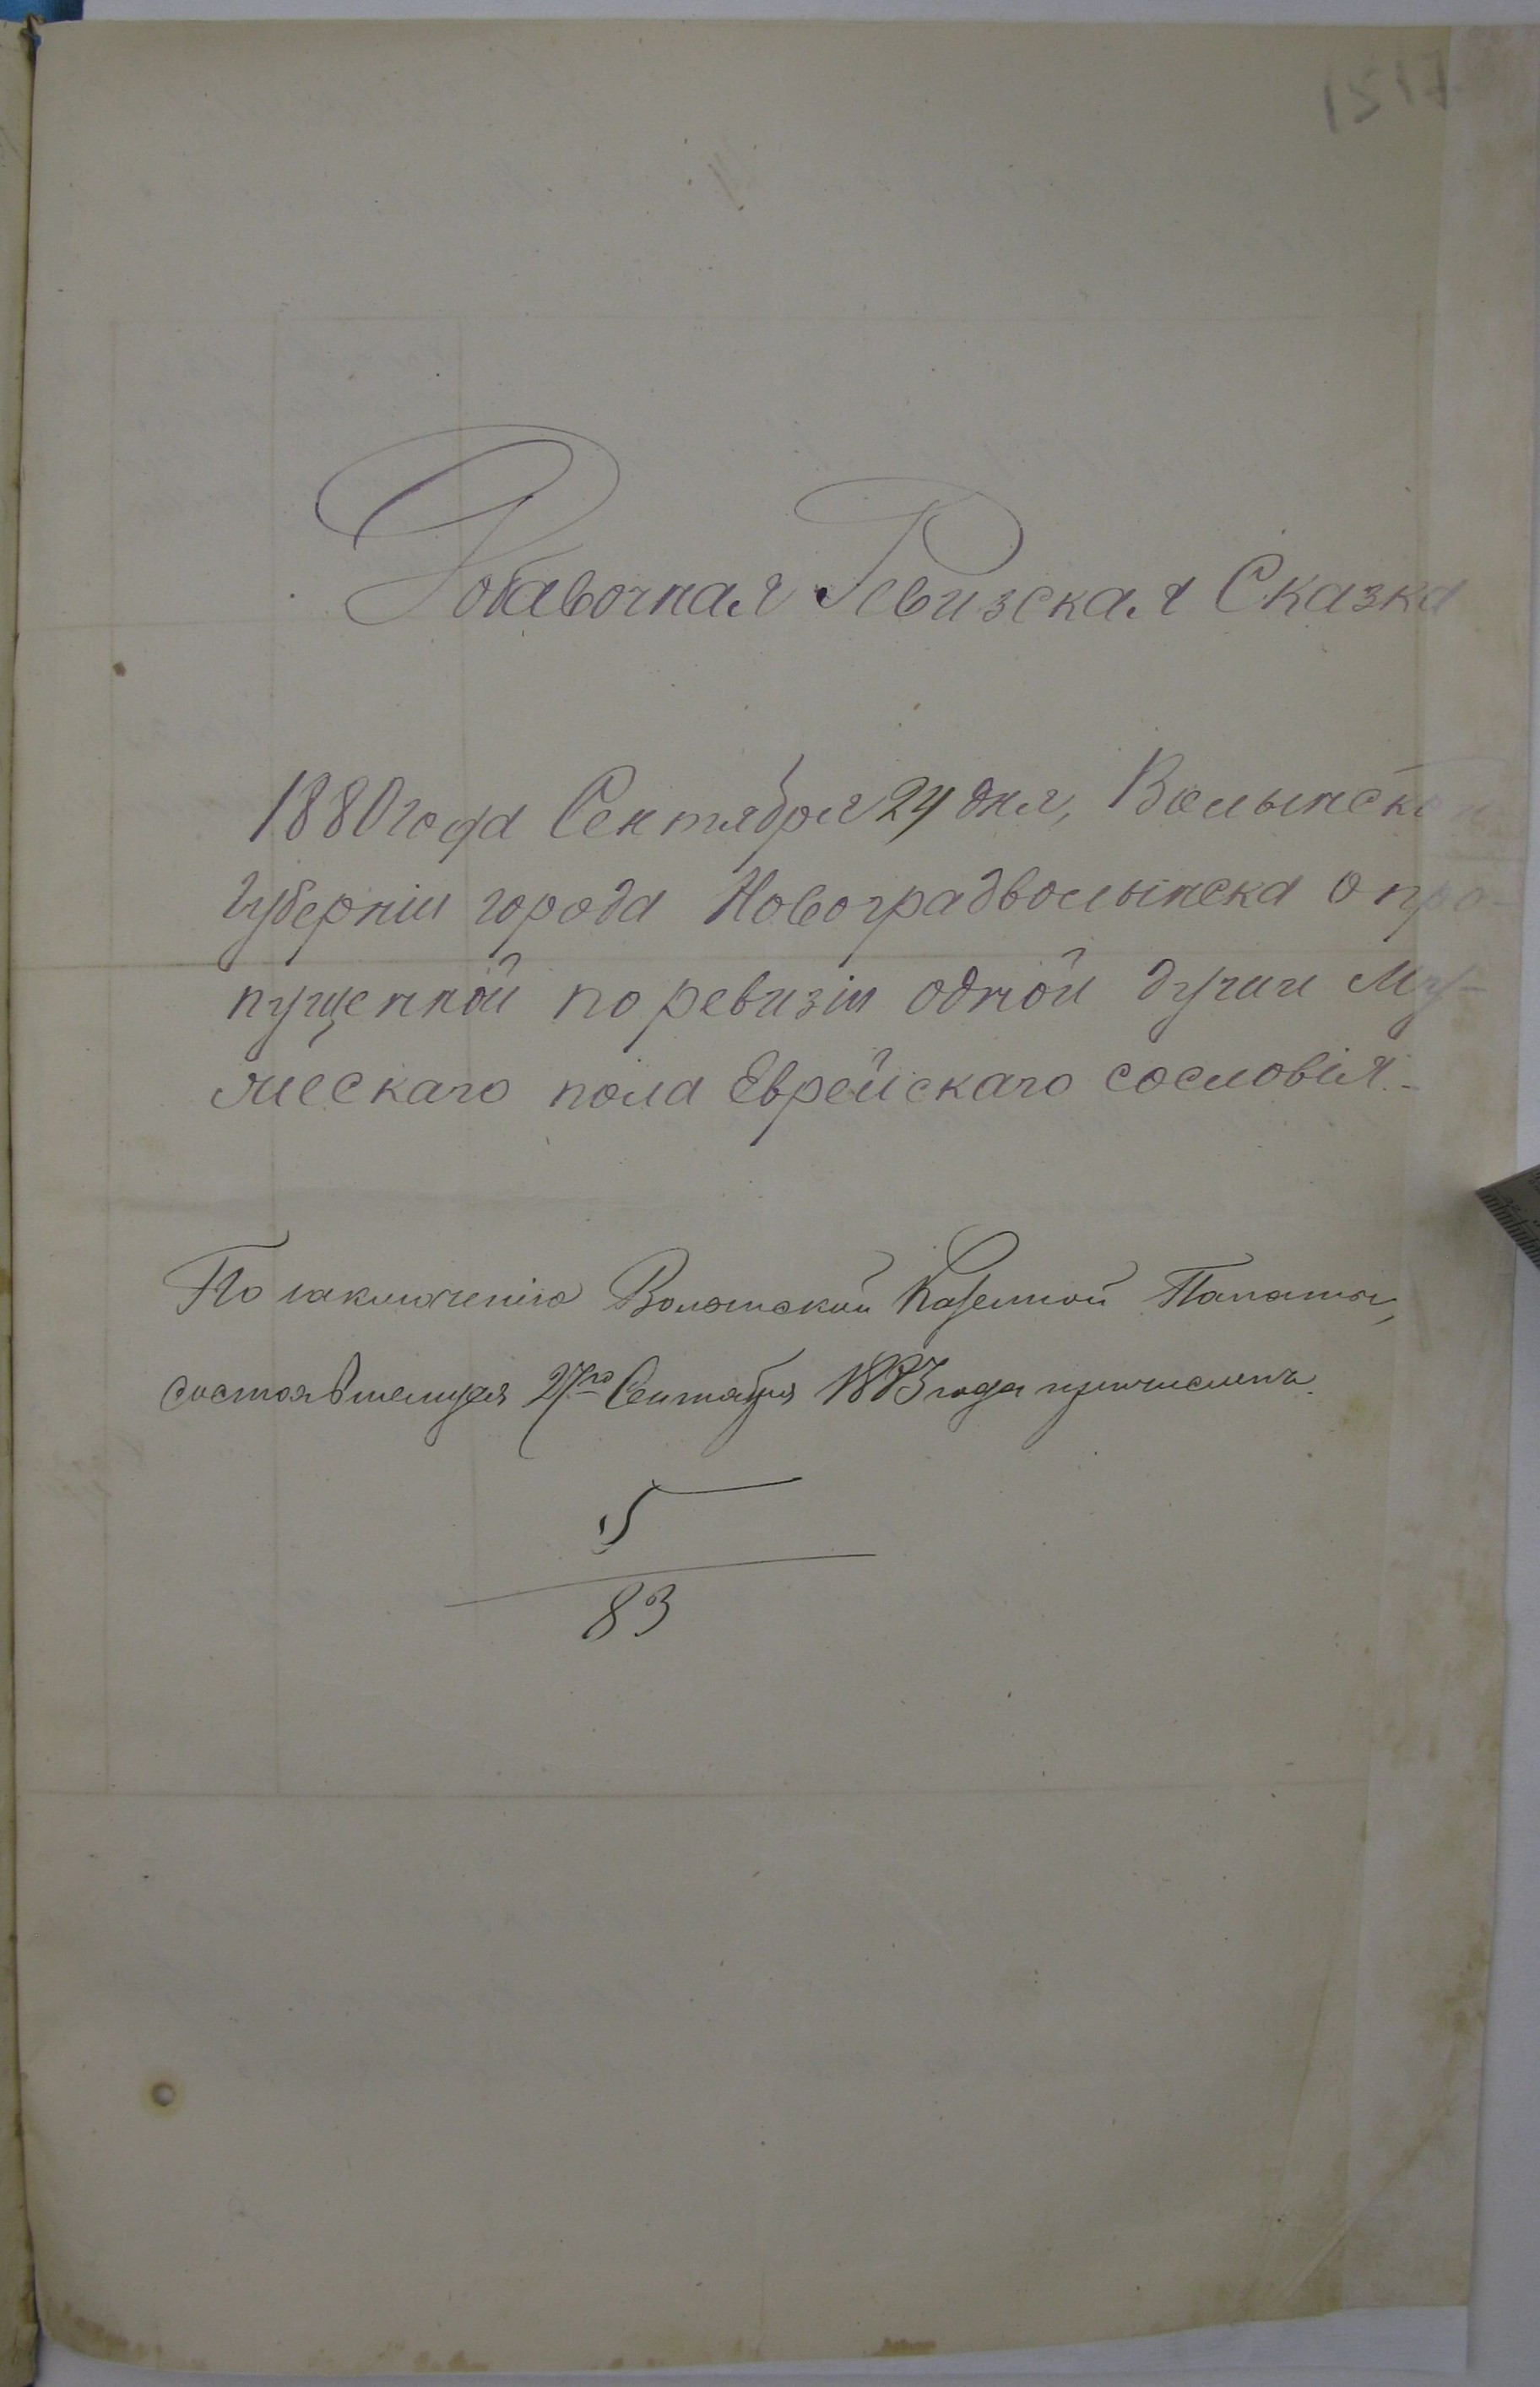 1517
Добавочная Ревизская Сказка
1880 года Сентября 24 дня, Волынской
Губерніи города Новоградволынска о про-
пущенной по ревизіи одной души Му-
жескаго пола Еврейскаго сословія.-
По заключенію Волынской Казенной Палаты,
состоявшемуся 27го Сентября 1883 года причисленъ.
5
83